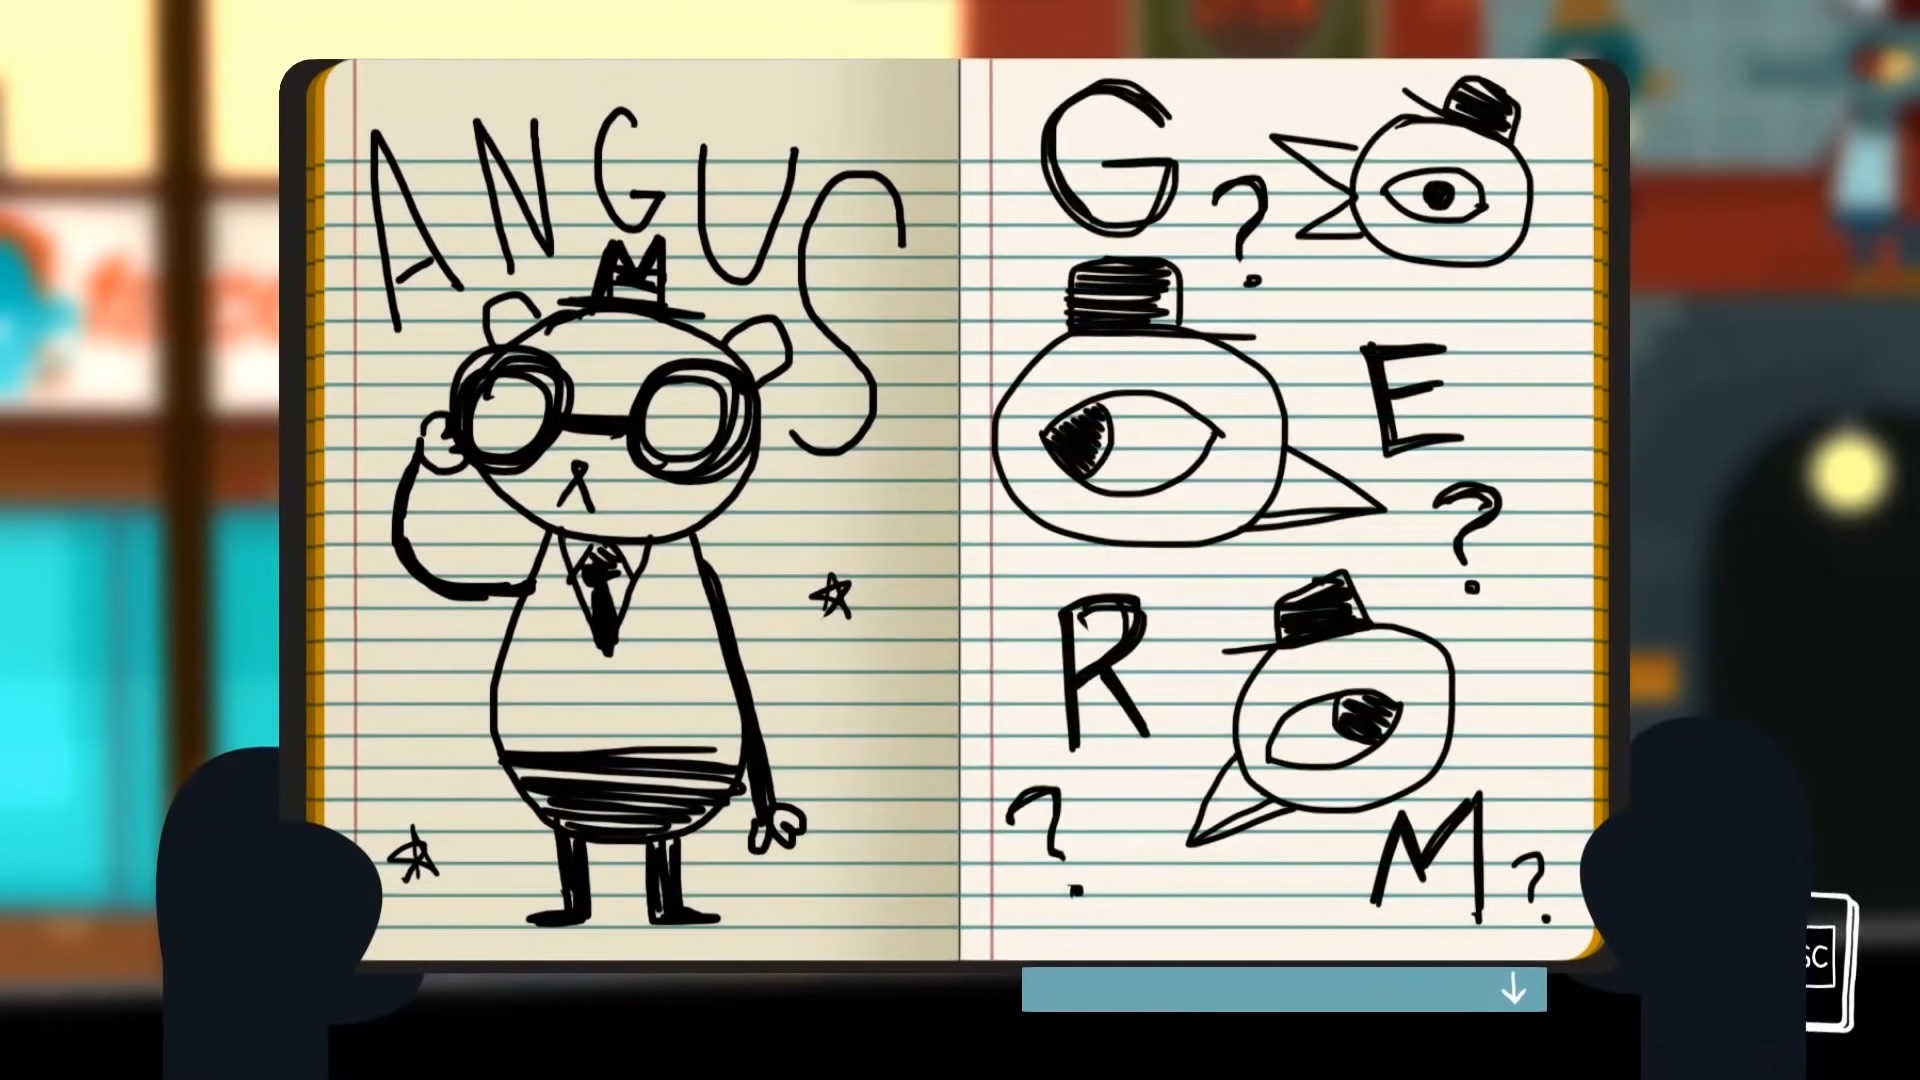 ANGUS
G?
E?
R?
M?
SC